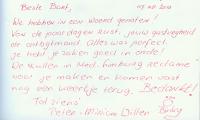 Beste Bart,
We hebben in een woord genoten!
Van de paar dagen rust, jouw gastvrijheid
de ontbijtmand. Alles was perfect
je hebt je zaken goed in orde!
We zullen in Med-Limburg reclame
voor je maken en komen vast
nog een weekje terug. Bedankt!
Tot ziens
Peter - Miriam Dillen